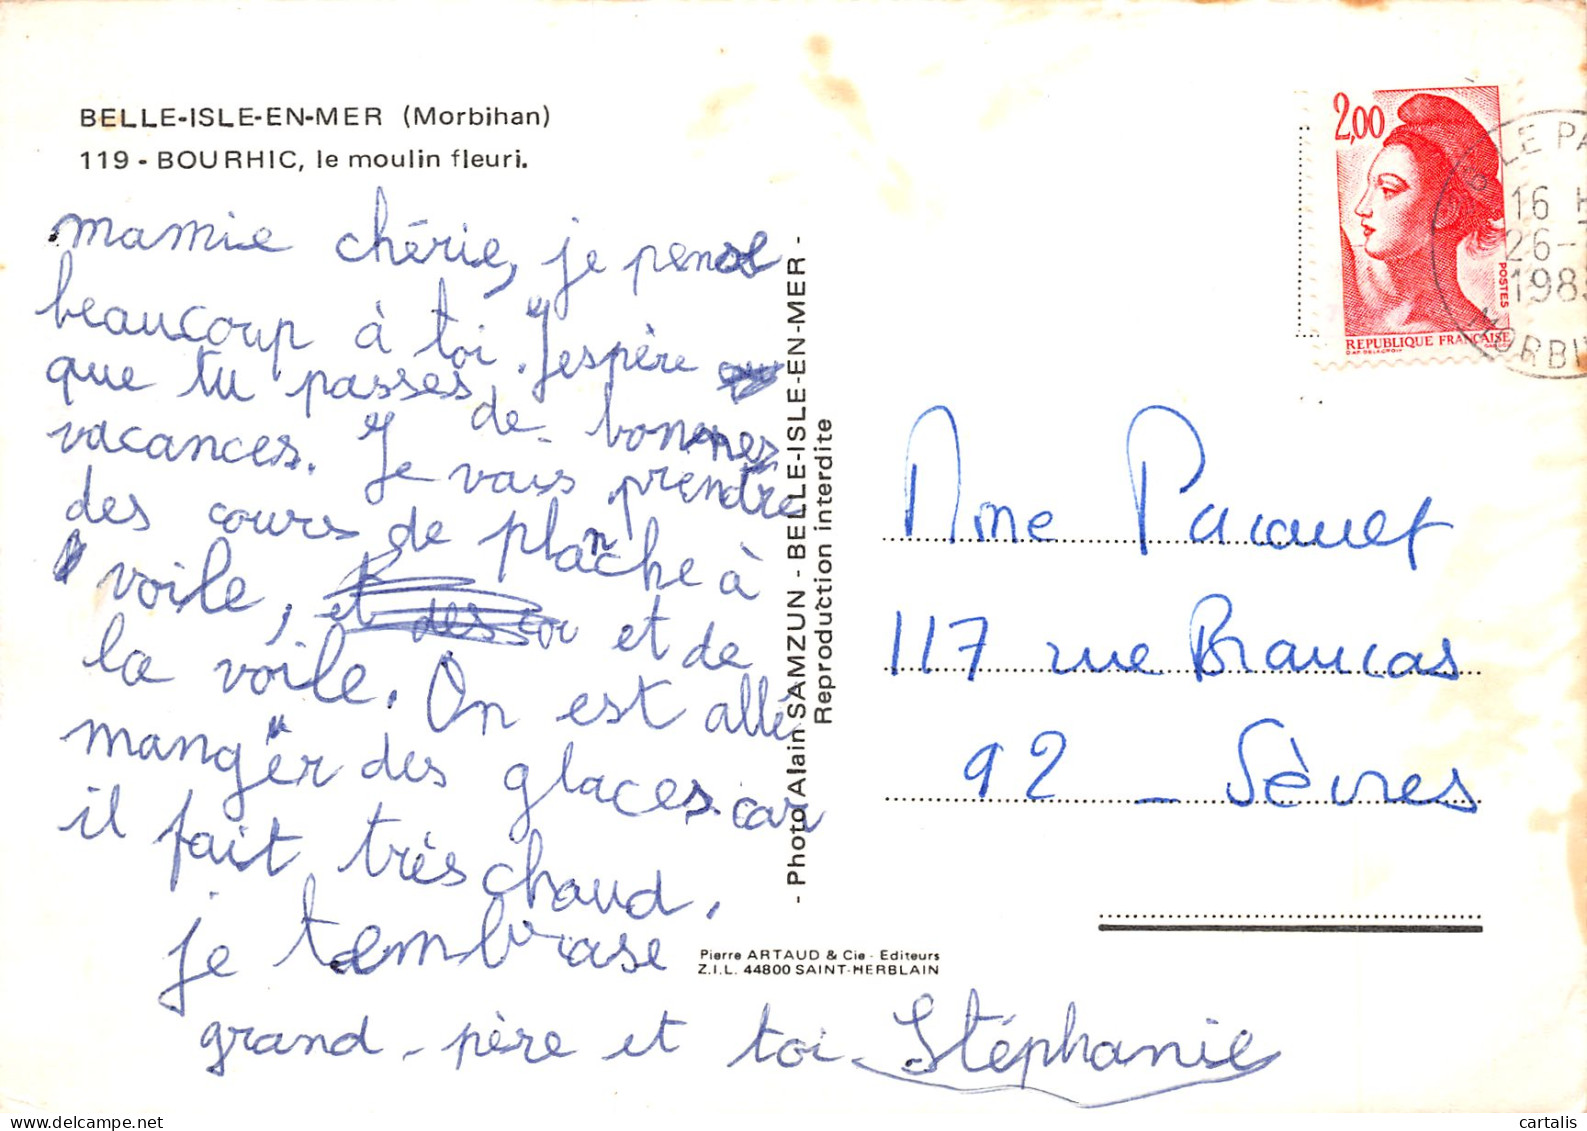 BELLE-ISLE-EN-MER (Morbihan)
119 - BOURHIC, le moulin fleuri.
mamie chérie, je pense
beaucoup à toi. J'espère
que tu passes de bonnes
vacances. Je vais prendre
des cours de planche à
voile, et des cou et de
la voile. On est allé
manger des glaces car
il fait très chaud.
je tembrase
grand-père et toi Stéphanie
- Photo Alain SAMZUN - BELLE-ISLE-EN-MER -
Reproduction interdite
Pierre ARTAUD & Cie - Editeurs
Z.I.L. 44800 SAINT-HERBLAIN
2,00
POSTES
REPUBLIQUE FRANÇAISE
LE PA
16 H
26-
198
MORBI
Mme Pacquet
117 rue Brancas
92 - Sèvres
cartalis